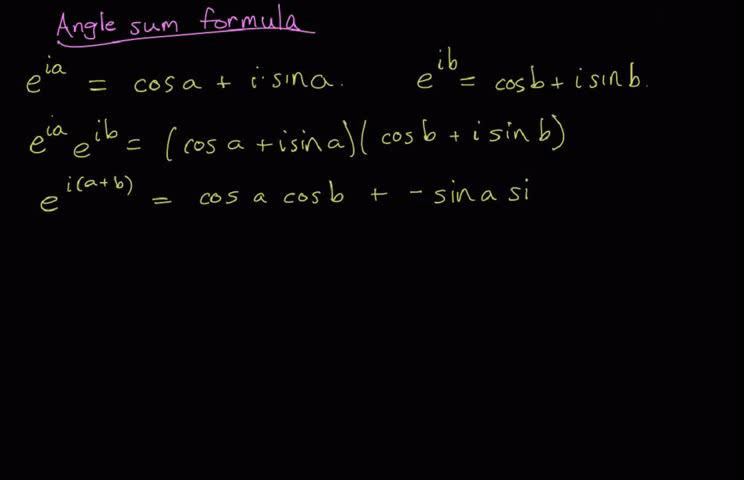 Angle sum formula
e^{ia} = cos a + i·sin a. e^{ib} = cos b + i sin b.
e^{ia} e^{ib} = (cos a + i sin a)(cos b + i sin b)
e^{i(a+b)} = cos a cos b + - sin a si